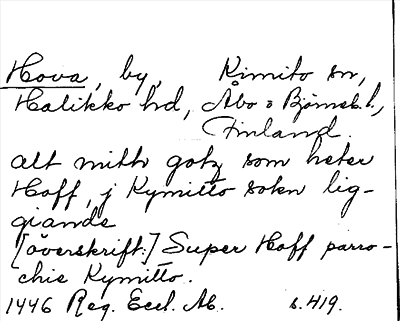 Hova, by, Kimito sn,
Halikko hd, Åbo o Björneb. l,
Finland.
alt mith gotz som heter
Hoff, j Kymitto sokn lig-
giande
[överskrift:] Super Hoff parro-
chie Kymitto.
1446 Reg. Eccl. Ab. s. 419.